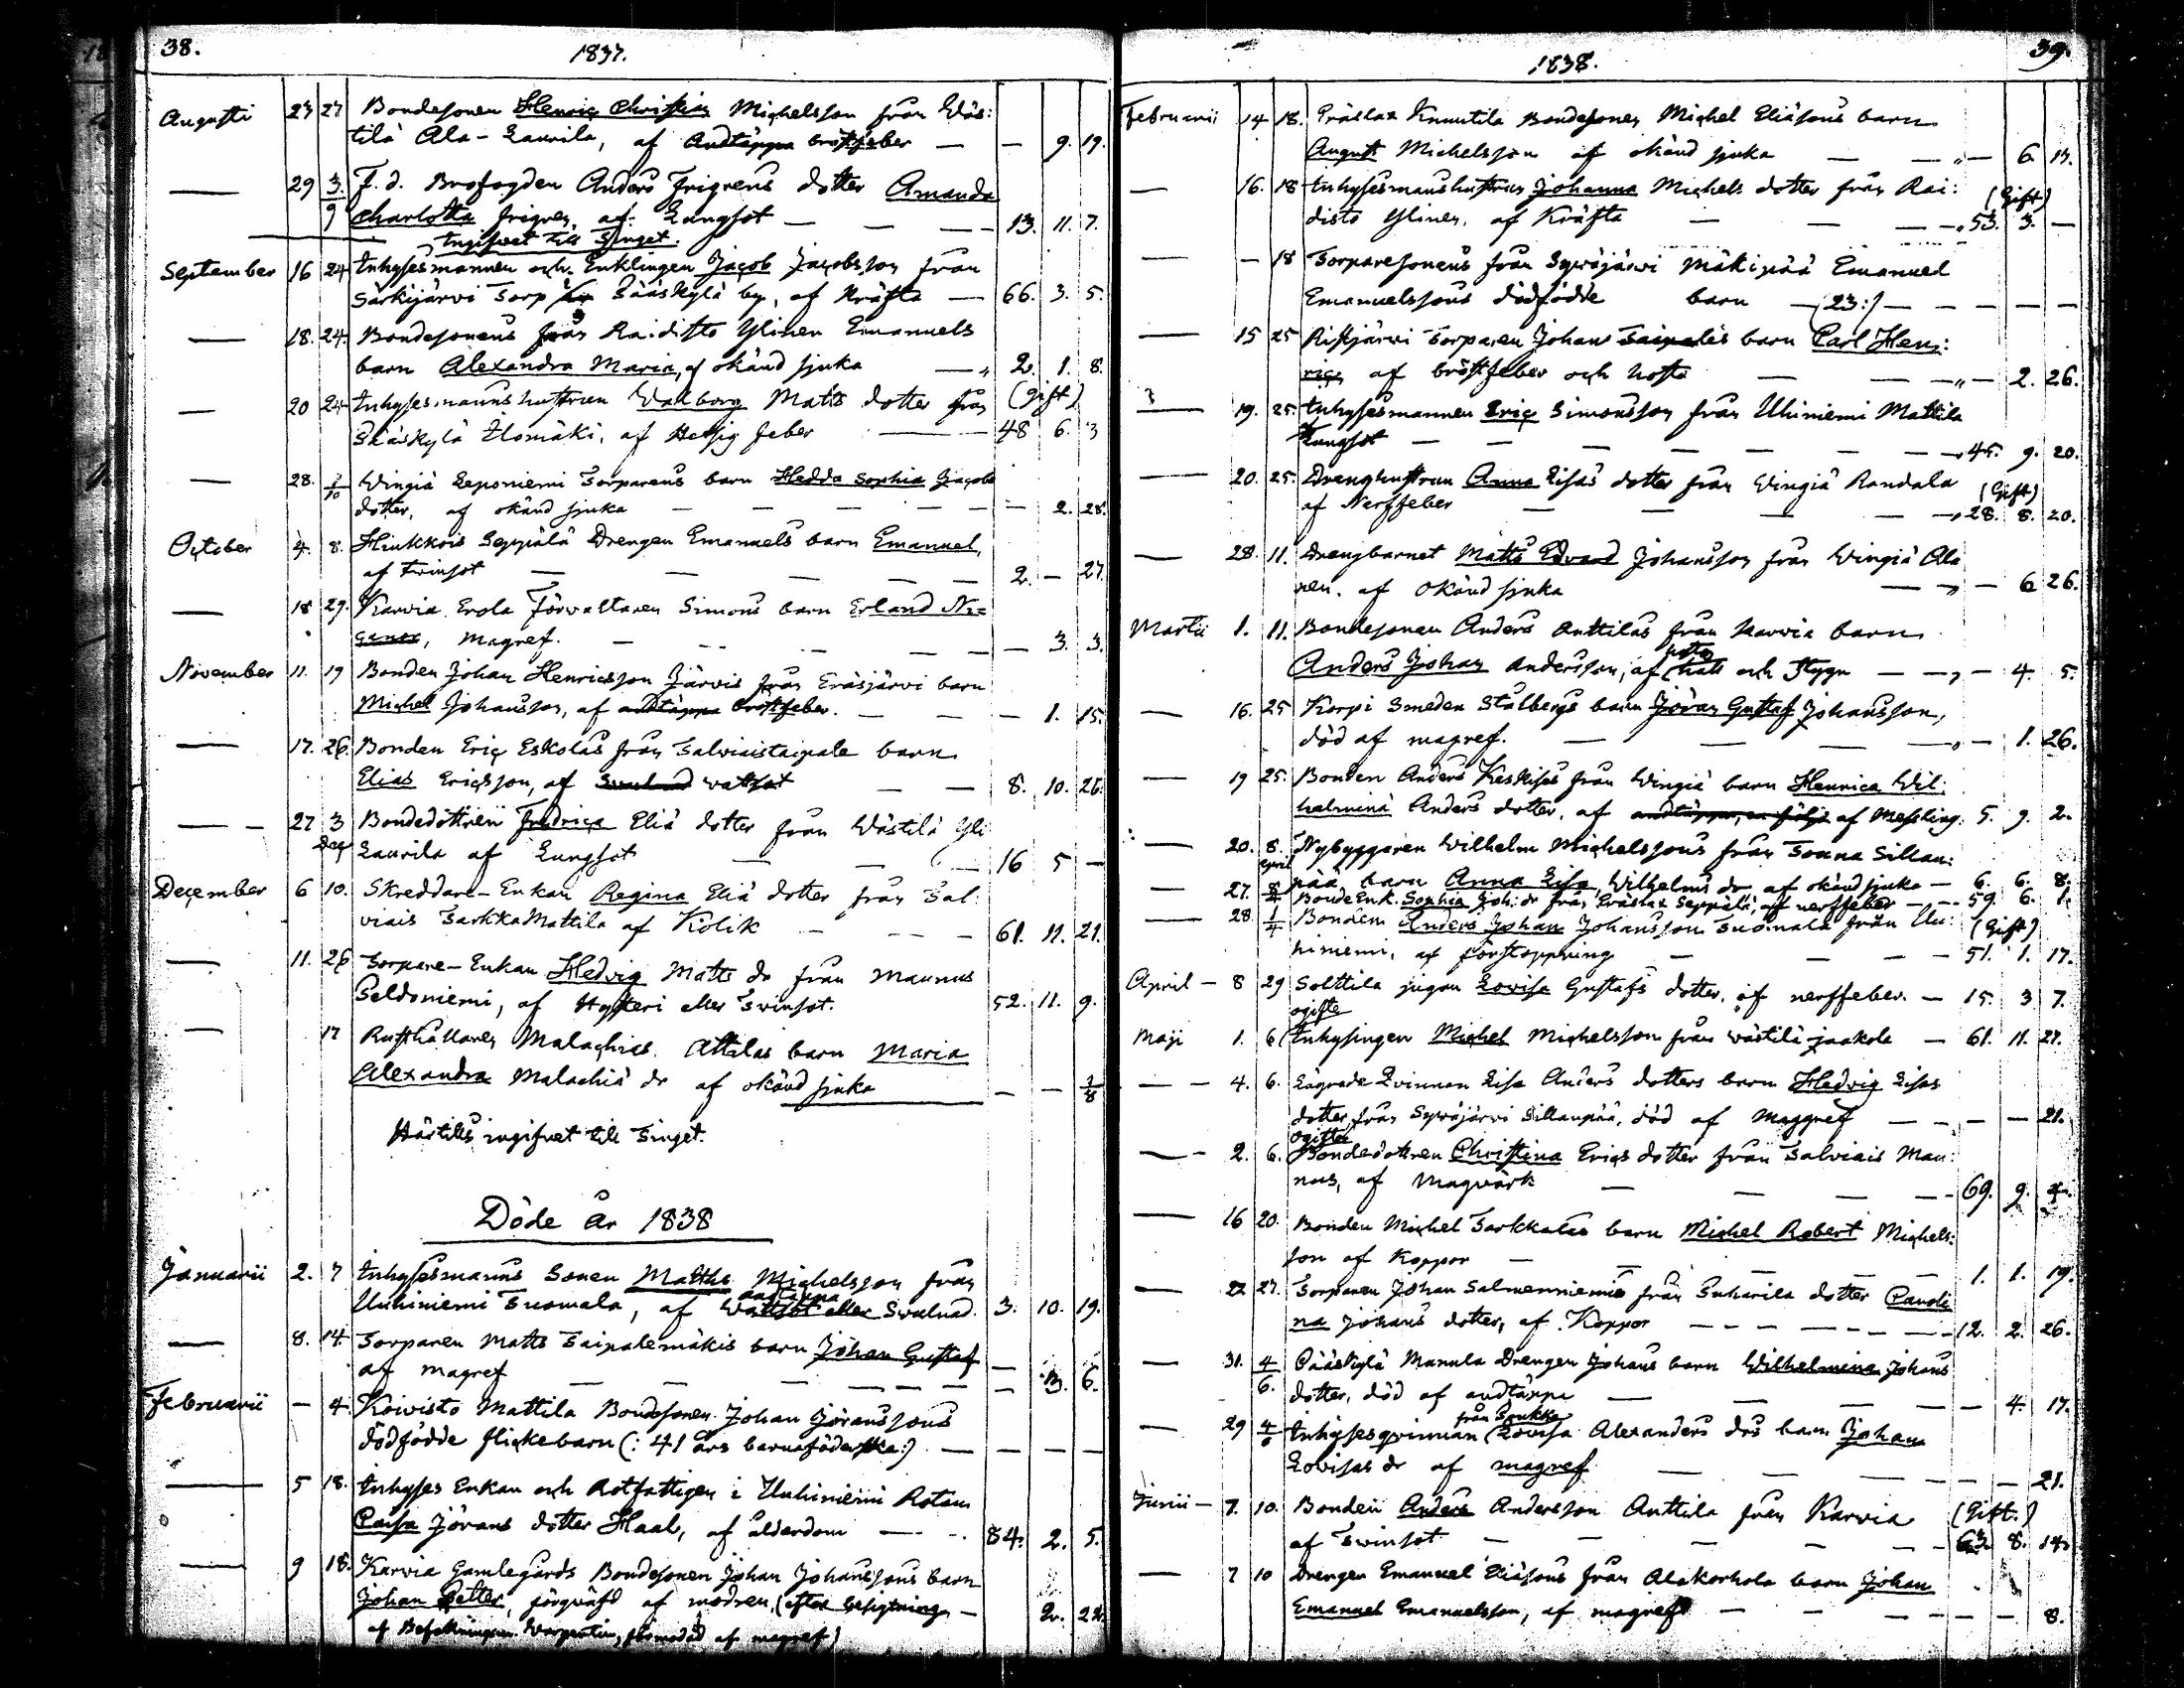 38.
1837.
Augusti 23 27 Bondesonen Henric Christian Michelsson från Wäs:
tilä Ala-Laurila, af Andtäppa bröstfeber — — 9. 19.
— 29 3/9 F. d. Brofogden Anders Frigrens dotter Amanda
Charlotta Frigren, af Lungsot — — — 13. 11. 7.
Ingifvet till Tinget.
September 16 24 Inhysesmannen och Enklingen Jacob Jacobsson från
Särkijärvi Torp Sääskylä by, af Kräfta — 66. 3. 5.
— 18. 24. Bondesonens från Raidisto Ylinen Emanuels
barn Alexandra Maria, af okänd sjuka — 2. 1. 8.
— 20 24 Inhysesmanns hustrun Walborg Matts dotter från (Gift)
Sääskylä Ilomäki, af Hetsig feber — 48 6. 3
— 28. 1/10 Wingiä Leponiemi Torparens barn Hedda Sophia Jacobs
dotter, af okänd sjuka — — — — — 2. 28.
October 4. 8. Hiukkois Seppälä Drengen Emanuels barn Emanuel,
af Twinsot — — — — — 2. — 27.
— 18 29. Karvia Erola Förvaltaren Simons barn Erland Ni=
canor, magref. — — — — — 3. 3.
November 11. 19 Bonden Johan Henricsson Järvis från Eräsjärvi barn
Michel Johansson, af andtäppa bröstfeber. — — — 1. 15.
— 17. 26. Bonden Eric Eskolas från Salviaistaipale barn
Elias Ericsson, af wattsot — — 8. 10. 26.
— 27 3 Bondedottren Fredrica Eliä dotter från Wästilä Yli
Dec Laurila af Lungsot — — — 16 5 —
December 6 10. Skreddare-Enkan Regina Eliä dotter från Sal:
viais Sarkka Mattila af Kolik — — — 61. 11. 21.
— 11. 26 Torpare-Enkan Hedvig Matts dr från Maunus
Peldoniemi, af Hysteri eller Twinsot. 52. 11. 9.
— 17 Rusthållaren Malachias Attilas barn Maria
Alexandra Malachiä dr af okänd sjuka — — 1/8
Härtills ingifvet till Tinget.
Döde År 1838
Januarii 2. 7 Inhysesmanns Sonen Matths Michelsson från
andtäppa
Uuhiniemi Tuomala, af Wattsot eller Swulnad. 3. 10. 19.
— 8. 14. Torparen Matts Taipalemäkis barn Johan Gustaf
af magref — — — — — 3. 6.
Februarii — 4. Koivisto Mattila Bondesonen Johan Göranssons
dödfödde flickebarn (: 41 års barnaföderska:) — — — —
— 5 18. Inhyses Enkan och Rotfattigen i Uuhiniemi Rotan
Caisa Görans dotter Haal, af ålderdom — 84. 2. 5.
— 9 18. Karvia Gamlegårds Bondesonen Johan Johanssons barn
Johan Petter, förqväfd af modren, (efter besigtning — 2. 22.
af magref)
1838.
39.
Februarii 14 18. Eräslax Knuutila Bondesonen Michel Eliäsons barn
August Michelsson af okänd sjuka — — — 6. 13.
— 16. 18 Inhysesmanshustrun Johanna Michels dotter från Rai: (Gift)
disto Ylinen, af Kräfta — — — 53. 3. —
— — 18 Torparesonens från Sywäjärwi Mäkipää Emanuel
Emanuelssons dödfödde barn — (23:) — — — —
— 15 25 Ristjärvi Torparen Johan Taipales barn Carl Hen:
ric, af bröstfeber och hosta — — — 2. 26.
— 19. 25. Inhysesmannen Eric Simonsson från Uhiniemi Mattila
Lungsot — — — — — 45. 9. 20.
— 20. 25. Drenghustrun Anna Lisas dotter från Wingiä Randala (Gift)
af Nerffeber — — — — 28. 8. 20.
— 28. 11. Drengbarnet Matts Edvard Johansson från Wingiä Ala
nen. af okänd sjuka — — 6 26.
Martii 1. 11. Bondesonen Anders Anttilas från Karvia barn
Anders Johan Andersson, af och Stygn — — — 4. 5.
— 16. 25 Korpi Smeden Stålbergs barn Göran Gustaf Johansson,
död af magref. — — — — — 1. 26.
— 19 25. Bonden Anders Keskises från Wingiä barn Henrica Wil:
halmina Anders dotter, af af Messling. 5. 9. 2.
— 20. 8. april Nybyggaren Wilhelm Michelssons från Tonna Sillan:
pää barn Anna Lisa, Wilhelms dr af okänd sjuka — 6. 6. 8.
— 27. 8/4 Bonde Enk. Sophia Joh: dr från Eräslax Seppälä, af nerffeber — 59. 6. 1.
— 28. 1/4 Bonden Anders Johan Johansson Tuomala från Uu: (Gift)
hiniemi, af förstoppning — — — 51. 1. 17.
April — 8 29 Solttila pigan Lovisa Gustafs dotter, af nerffeber. — 15. 3 7.
ogifte
Maji 1. 6 Inhysingen Michel Michelsson från Wästilä Jaakola — 61. 11. 27.
— 4. 6. Lägrade Qvinnan Lisa Anders dotters barn Hedvig Lisas
dotter, från Sywäjärvi Sillanpää, död af Maggref — — — 21.
Ogifta
— 2. 6. Bondedottren Christina Erics dotter från Salviais Mau:
nus, af Magwärk — — — 69. 9. 4.
— 16 20. Bonden Michel Sarkkalas barn Michel Robert Michels:
son af Koppor — — — — — 1. 1. 19.
— 22 27. Torparen Johan Salmenniemis från Suharila dotter Caroli
na Johans dotter, af Koppor — — — — — 12. 2. 26.
— 31. 4/6. Pääskylä Manula Drengen Johans barn Wilhelmina Johans
dotter, död af andtäppa — — — — 4. 17.
— 29 4/6 Inhysesqvinnan Lovisa Alexanders drs barn Johan
Lovisas dr af magref — — — — — 21.
Junii — 7. 10. Bonden Anders Andersson Anttila från Karvia (Gift.)
af Twinsot — — — — — 63. 8. 14.
— 7 10 Drengen Emanuel Eliäsons från Alakorhola barn Johan
Emanuel Emanuelsson, af magref — — — — — 8.